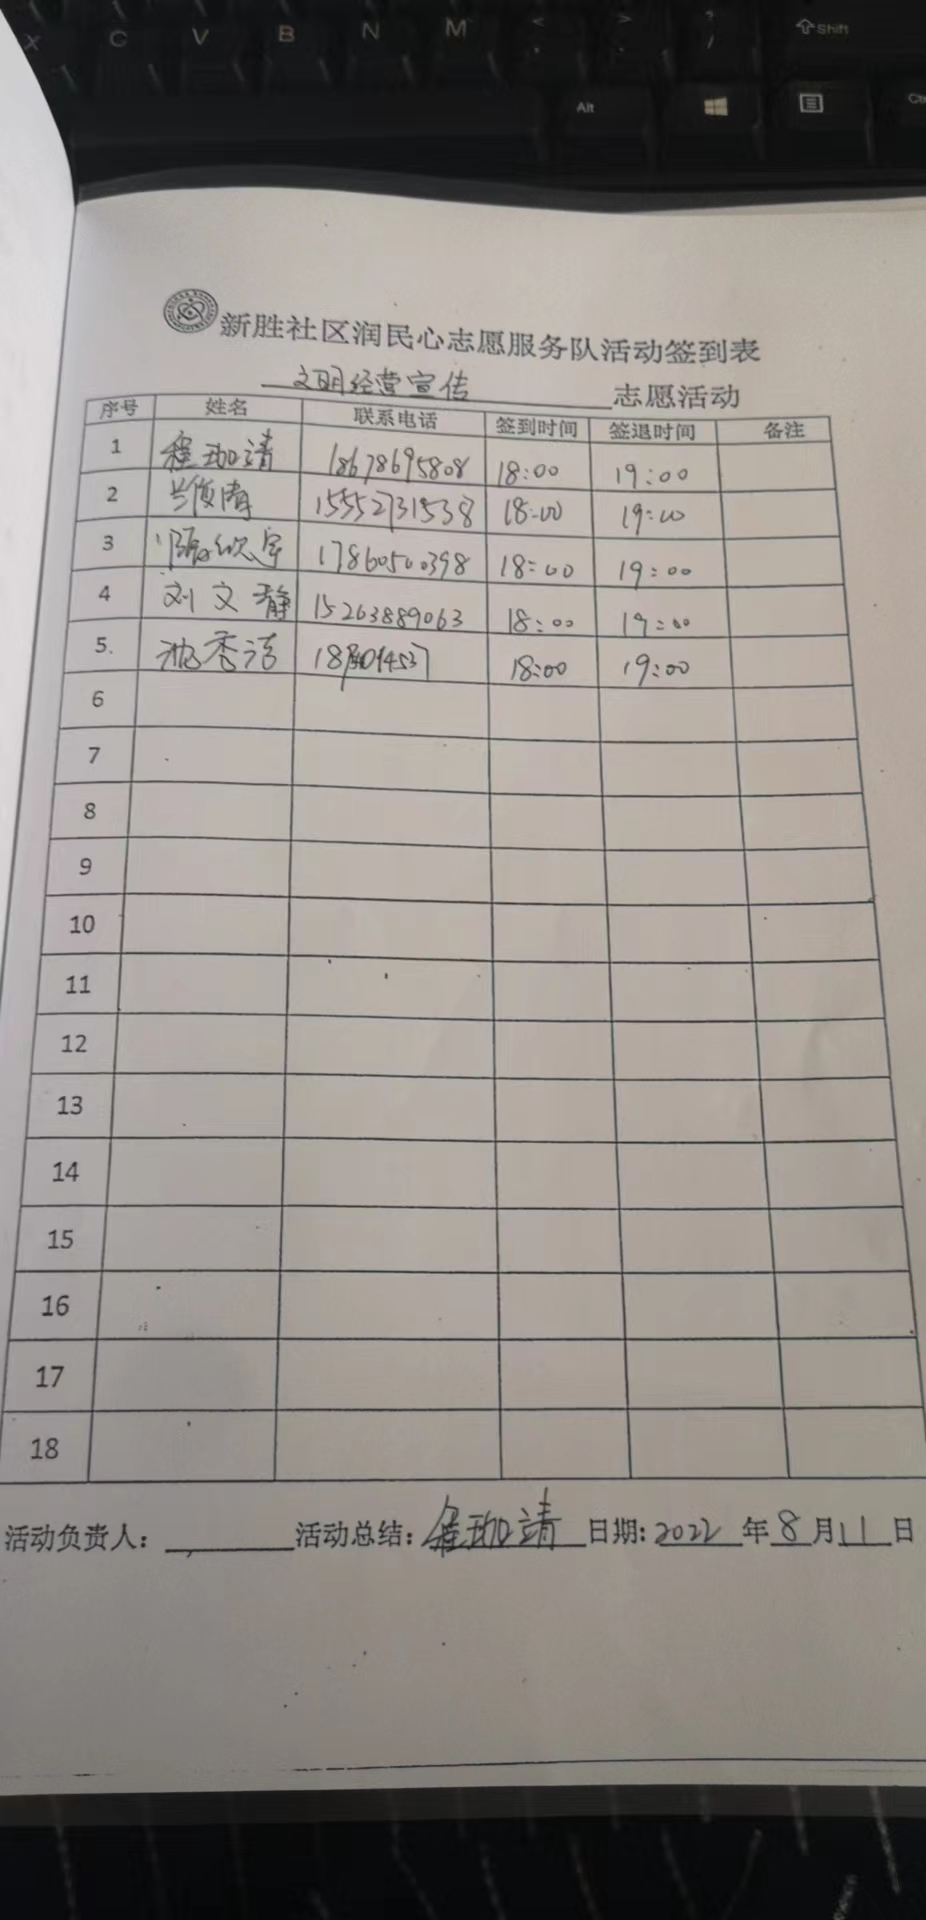 X C V B N M < , > . ? / Shift
Alt Ctr
新胜社区润民心志愿服务队活动签到表
文明经营宣传 志愿活动
序号 姓名 联系电话 签到时间 签退时间 备注
1 程珈靖 18678695808 18:00 19:00
2 15552731538 18:00 19:00
3 17860500398 18:00 19:00
4 刘文静 15263889063 18:00 19:00
5. 18:00 19:00
6
7
8
9
10
11
12
13
14
15
16
17
18
活动负责人: 活动总结: 程珈靖 日期: 2022 年 8 月 11 日